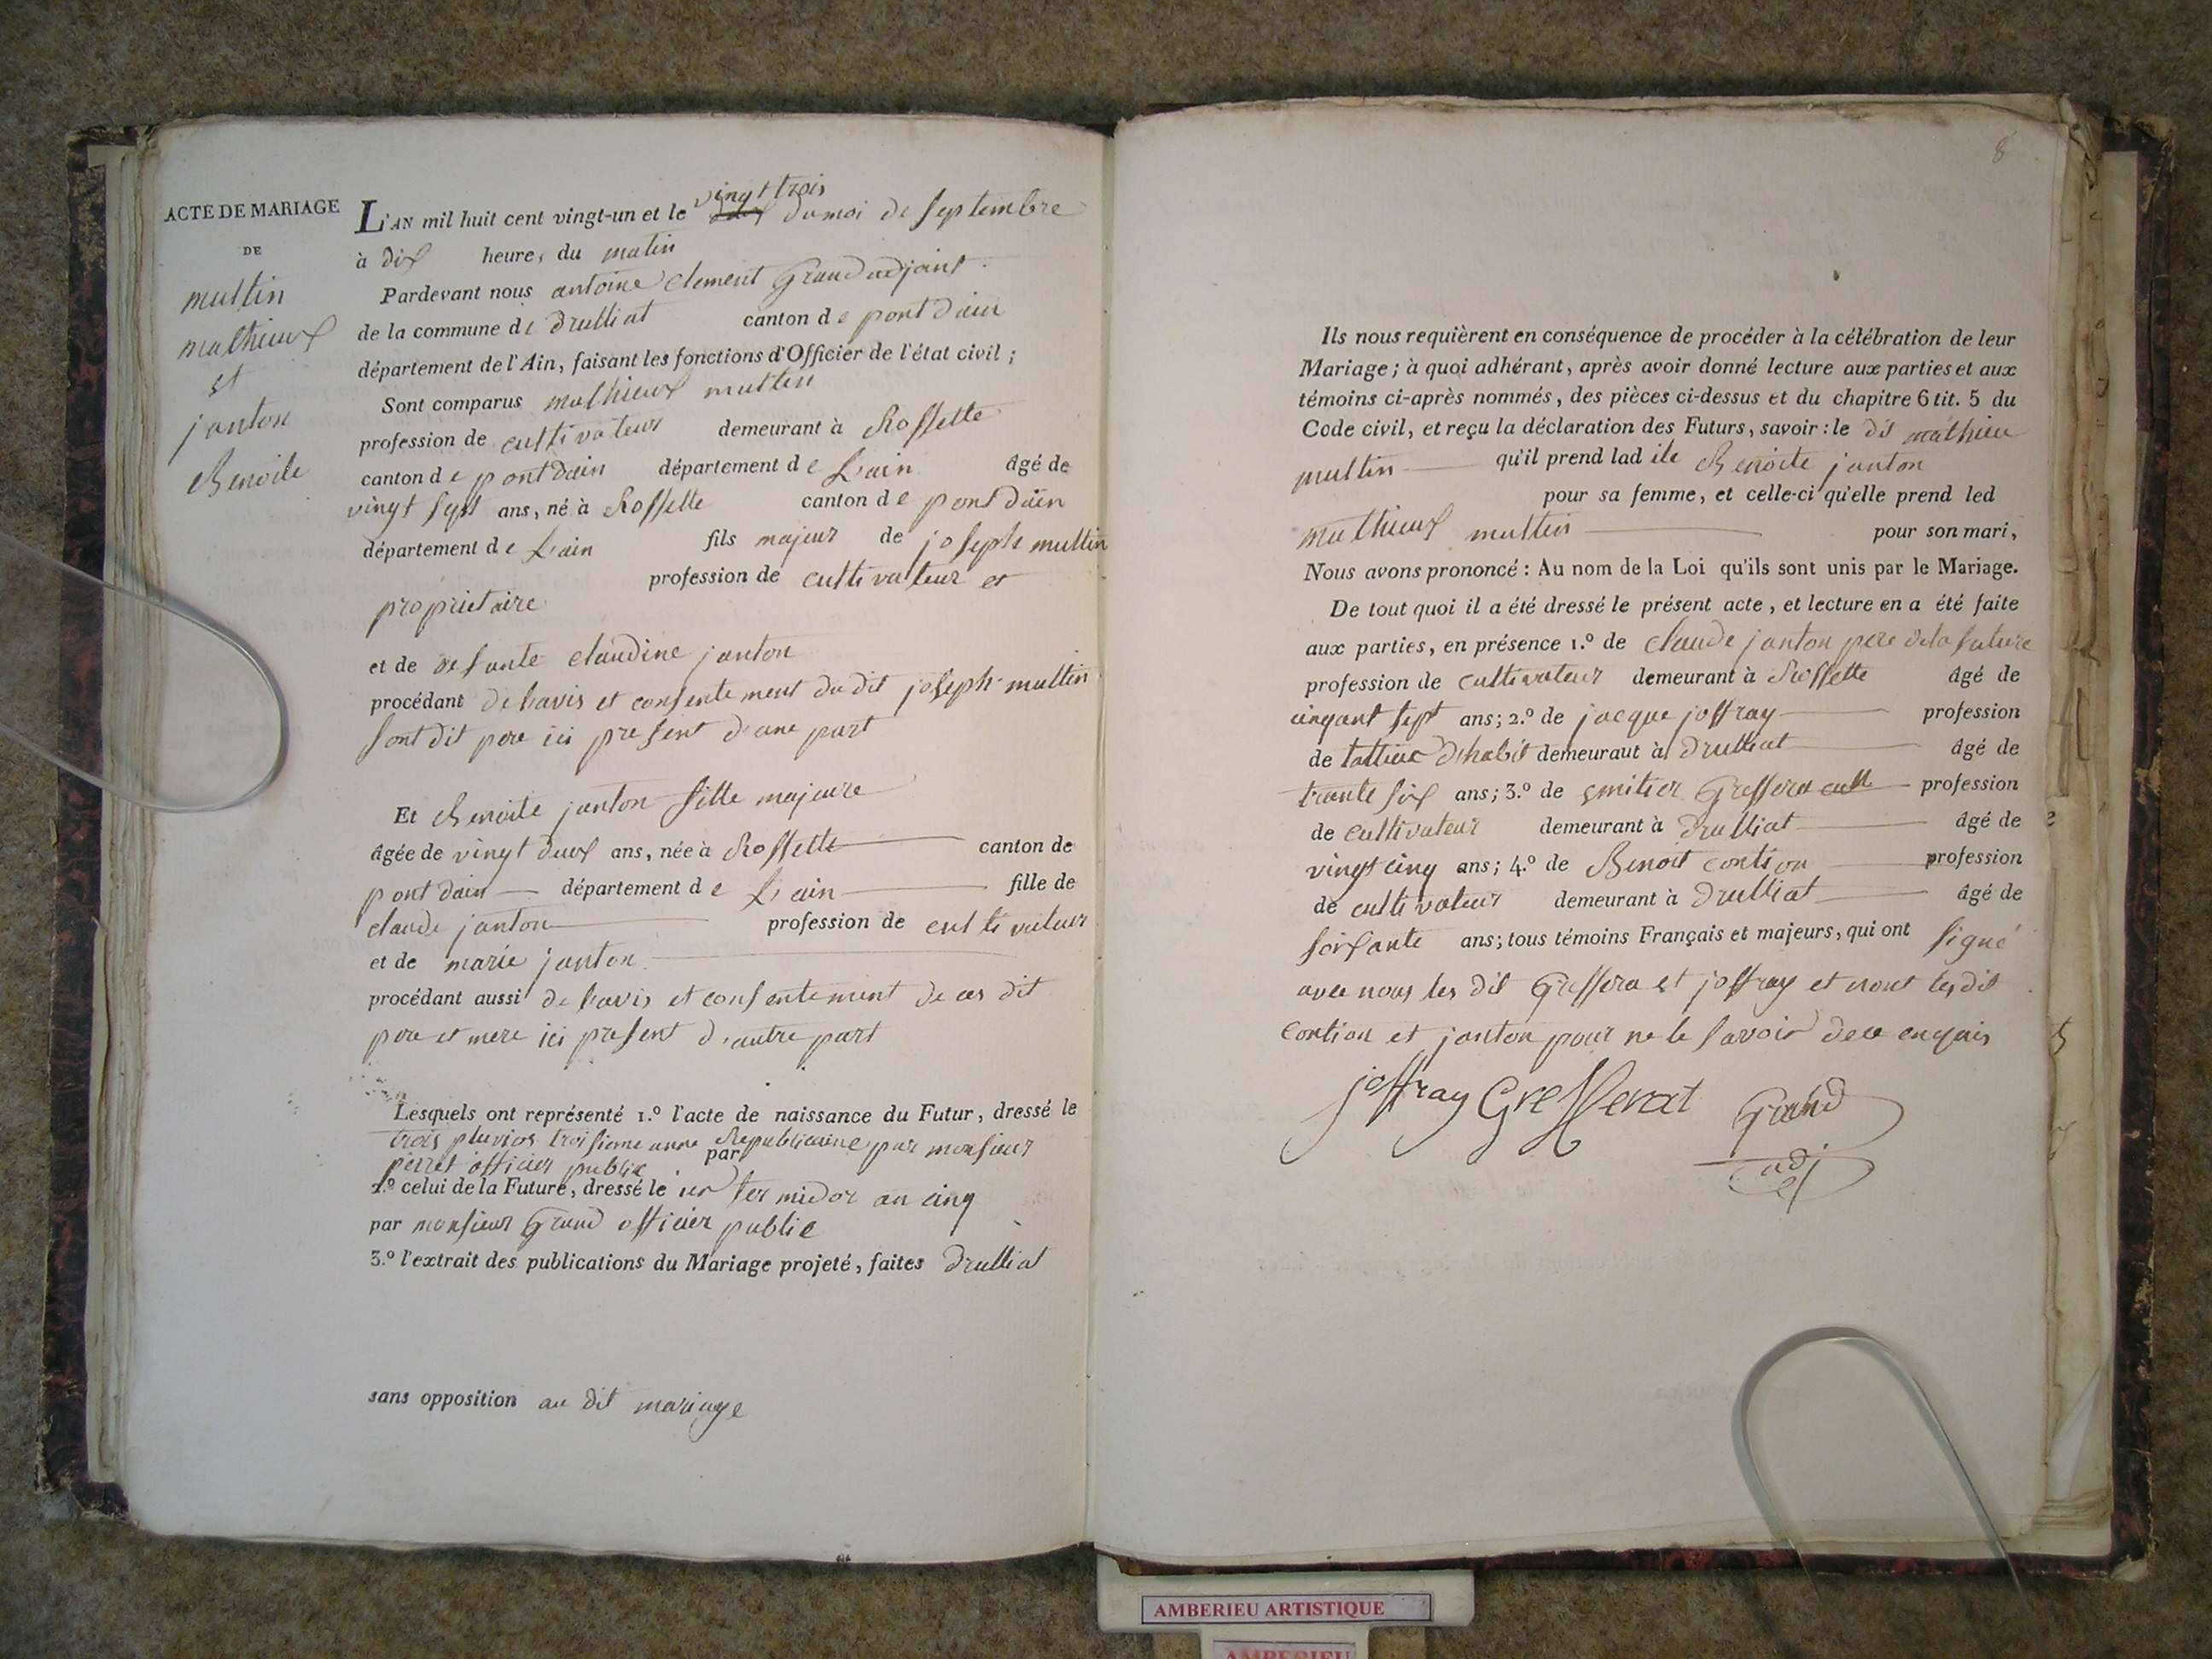 8
ACTE DE MARIAGE
DE
multin
mathieux
et
janton
Benoite
L'AN mil huit cent vingt-un et le vingt trois du moi de septembre
à dix heure, du matin
Pardevant nous antoine Clement Grand adjoint
de la commune de Drulliat canton de pont dain
département de l'Ain, faisant les fonctions d'Officier de l'état civil ;
Sont comparus mathieux multin
profession de cultivateur demeurant à Rossette
canton de pont dain département de L'ain âgé de
vingt sept ans, né à Rossette canton de pont dain
département de L'ain fils majeur de joseph multin
profession de cultivateur et
proprietaire
et de defunte claudine janton
procédant de lavis et consentement du dit joseph multin
sont dit pere ici present d'une part
Et Benoite janton fille majeure
âgée de vingt deux ans, née à Rossette canton de
pont dain département de L'ain fille de
claude janton profession de cultivateur
et de marie janton
procédant aussi de lavis et consentement de ces dit
pere et mere ici present d'autre part
Lesquels ont représenté 1.º l'acte de naissance du Futur, dressé le
trois pluvios troisieme anne Republicaine par monsieur
perret officier public par
2.º celui de la Future, dressé le termidor an cinq
par monsieur Grand officier public
3.º l'extrait des publications du Mariage projeté, faites Drulliat
sans opposition au dit mariage
Ils nous requièrent en conséquence de procéder à la célébration de leur
Mariage ; à quoi adhérant, après avoir donné lecture aux parties et aux
témoins ci-après nommés, des pièces ci-dessus et du chapitre 6 tit. 5 du
Code civil, et reçu la déclaration des Futurs, savoir : le dit mathieu
multin qu'il prend lad ite Benoite janton
pour sa femme, et celle-ci qu'elle prend led
mathieux multin pour son mari,
Nous avons prononcé : Au nom de la Loi qu'ils sont unis par le Mariage.
De tout quoi il a été dressé le présent acte, et lecture en a été faite
aux parties, en présence 1.º de claude janton pere dela future
profession de cultivateur demeurant à Rossette âgé de
cinqant sept ans ; 2.º de jacque joffray profession
de tallieur d'habit demeuraut à Drulliat âgé de
trante six ans ; 3.º de Greffera profession
de cultivateur demeurant à Drulliat âgé de
vingt cinq ans ; 4.º de Benoit contion profession
de cultivateur demeurant à Drulliat âgé de
soixante ans ; tous témoins Français et majeurs, qui ont signé
avec nous les dit Greffera et joffray et nont les dit
contion et janton pour ne le savoir de ce enquis
joffray Grefferat Grand
adj
AMBERIEU ARTISTIQUE
AMBERIEU